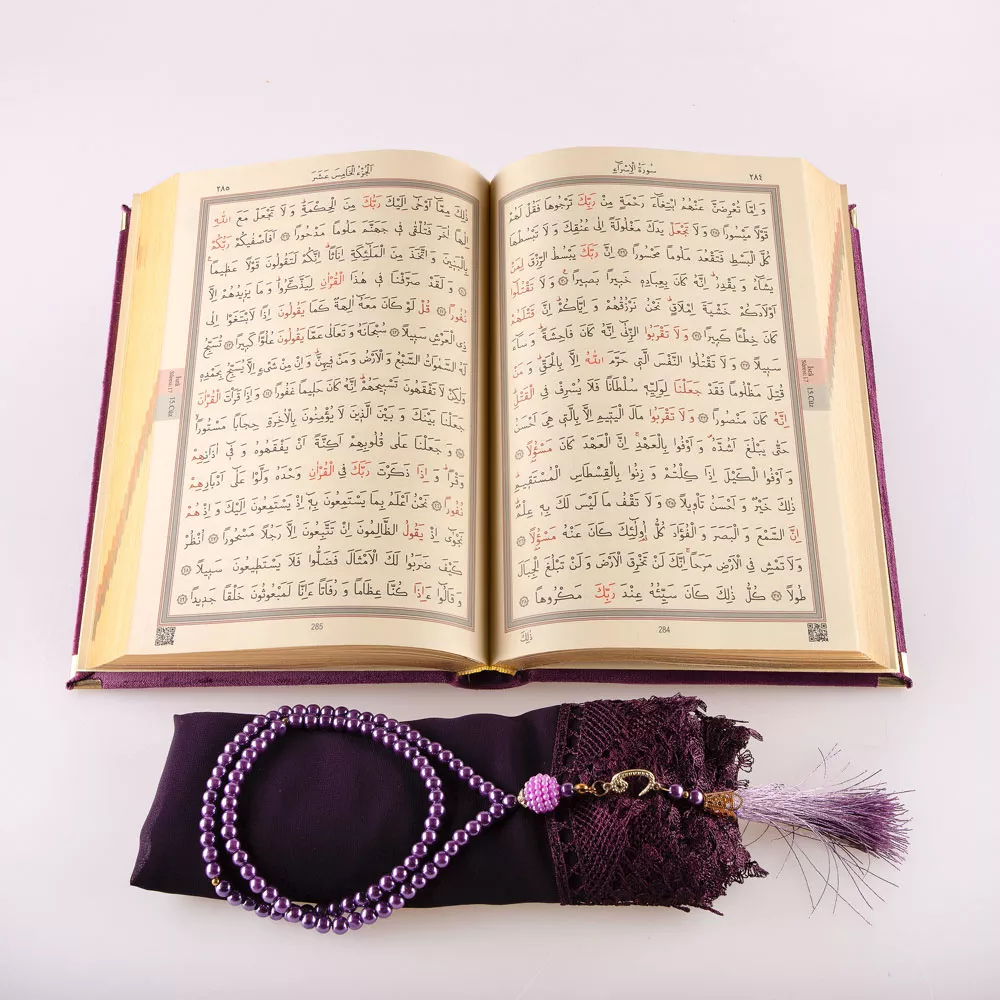 سُورَةُ الْاِسْرَاءِ ٢٨٤
وَ اِمَّا تُعْرِضَنَّ عَنْهُمُ ابْتِغَٓاءَ رَحْمَةٍ مِنْ رَبِّكَ تَرْجُوهَا فَقُلْ لَهُمْ
قَوْلًا مَيْسُورًا ﴿٢٨﴾ وَ لَا تَجْعَلْ يَدَكَ مَغْلُولَةً اِلٰى عُنُقِكَ وَ لَا تَبْسُطْهَا
كُلَّ الْبَسْطِ فَتَقْعُدَ مَلُومًا مَحْسُورًا ﴿٢٩﴾ اِنَّ رَبَّكَ يَبْسُطُ الرِّزْقَ لِمَنْ
يَشَٓاءُ وَ يَقْدِرُ اِنَّهُ كَانَ بِعِبَادِهِ خَبِيرًا بَصِيرًا ﴿٣٠﴾ وَ لَا تَقْتُلُٓوا
اَوْلَادَكُمْ خَشْيَةَ اِمْلَاقٍ نَحْنُ نَرْزُقُهُمْ وَ اِيَّاكُمْ اِنَّ قَتْلَهُمْ
كَانَ خِطْـًٔا كَبِيرًا ﴿٣١﴾ وَ لَا تَقْرَبُوا الزِّنٰٓى اِنَّهُ كَانَ فَاحِشَةً وَ سَٓاءَ
سَبِيلًا ﴿٣٢﴾ وَ لَا تَقْتُلُوا النَّفْسَ الَّتِي حَرَّمَ اللّٰهُ اِلَّا بِالْحَقِّ وَ مَنْ
قُتِلَ مَظْلُومًا فَقَدْ جَعَلْنَا لِوَلِيِّهِ سُلْطَانًا فَلَا يُسْرِفْ فِي الْقَتْلِ
اِنَّهُ كَانَ مَنْصُورًا ﴿٣٣﴾ وَ لَا تَقْرَبُوا مَالَ الْيَتِيمِ اِلَّا بِالَّتِي هِيَ اَحْسَنُ
حَتّٰى يَبْلُغَ اَشُدَّهُ وَ اَوْفُوا بِالْعَهْدِ اِنَّ الْعَهْدَ كَانَ مَسْؤُلًا ﴿٣٤﴾
وَ اَوْفُوا الْكَيْلَ اِذَا كِلْتُمْ وَ زِنُوا بِالْقِسْطَاسِ الْمُسْتَقِيمِ
ذٰلِكَ خَيْرٌ وَ اَحْسَنُ تَأْوِيلًا ﴿٣٥﴾ وَ لَا تَقْفُ مَا لَيْسَ لَكَ بِهِ عِلْمٌ
اِنَّ السَّمْعَ وَ الْبَصَرَ وَ الْفُؤَادَ كُلُّ اُولٰٓئِكَ كَانَ عَنْهُ مَسْؤُلًا ﴿٣٦﴾
وَلَا تَمْشِ فِي الْاَرْضِ مَرَحًا اِنَّكَ لَنْ تَخْرِقَ الْاَرْضَ وَ لَنْ تَبْلُغَ الْجِبَالَ
طُولًا ﴿٣٧﴾ كُلُّ ذٰلِكَ كَانَ سَيِّئُهُ عِنْدَ رَبِّكَ مَكْرُوهًا ﴿٣٨﴾
ذٰلِكَ
284
15. Cüz
اَلْجُزْءُ الْخَامِسَ عَشَرَ ٢٨٥
ذٰلِكَ مِمَّٓا اَوْحٰٓى اِلَيْكَ رَبُّكَ مِنَ الْحِكْمَةِ وَ لَا تَجْعَلْ مَعَ اللّٰهِ
اِلٰهًا اٰخَرَ فَتُلْقٰى فِي جَهَنَّمَ مَلُومًا مَدْحُورًا ﴿٣٩﴾ اَفَاَصْفٰيكُمْ رَبُّكُمْ
بِالْبَنِينَ وَ اتَّخَذَ مِنَ الْمَلٰٓئِكَةِ اِنَاثًا اِنَّكُمْ لَتَقُولُونَ قَوْلًا عَظِيمًا
﴿٤٠﴾ وَ لَقَدْ صَرَّفْنَا فِي هٰذَا الْقُرْاٰنِ لِيَذَّكَّرُوا وَ مَا يَزِيدُهُمْ اِلَّا
نُفُورًا ﴿٤١﴾ قُلْ لَوْ كَانَ مَعَهُٓ اٰلِهَةٌ كَمَا يَقُولُونَ اِذًا لَابْتَغَوْا اِلٰى
ذِي الْعَرْشِ سَبِيلًا ﴿٤٢﴾ سُبْحَانَهُ وَ تَعَالٰى عَمَّا يَقُولُونَ عُلُوًّا كَبِيرًا ﴿٤٣﴾ تُسَبِّحُ
لَهُ السَّمٰوَاتُ السَّبْعُ وَ الْاَرْضُ وَ مَنْ فِيهِنَّ وَ اِنْ مِنْ شَيْءٍ اِلَّا يُسَبِّحُ بِحَمْدِهِ
وَلٰكِنْ لَا تَفْقَهُونَ تَسْبِيحَهُمْ اِنَّهُ كَانَ حَلِيمًا غَفُورًا ﴿٤٤﴾ وَ اِذَا قَرَأْتَ الْقُرْاٰنَ
جَعَلْنَا بَيْنَكَ وَ بَيْنَ الَّذِينَ لَا يُؤْمِنُونَ بِالْاٰخِرَةِ حِجَابًا مَسْتُورًا
﴿٤٥﴾ وَ جَعَلْنَا عَلٰى قُلُوبِهِمْ اَكِنَّةً اَنْ يَفْقَهُوهُ وَ فِٓي اٰذَانِهِمْ
وَقْرًا وَ اِذَا ذَكَرْتَ رَبَّكَ فِي الْقُرْاٰنِ وَحْدَهُ وَلَّوْا عَلٰٓى اَدْبَارِهِمْ
نُفُورًا ﴿٤٦﴾ نَحْنُ اَعْلَمُ بِمَا يَسْتَمِعُونَ بِهِٓ اِذْ يَسْتَمِعُونَ اِلَيْكَ وَ اِذْ هُمْ
نَجْوٰٓى اِذْ يَقُولُ الظَّالِمُونَ اِنْ تَتَّبِعُونَ اِلَّا رَجُلًا مَسْحُورًا ﴿٤٧﴾ اُنْظُرْ
كَيْفَ ضَرَبُوا لَكَ الْاَمْثَالَ فَضَلُّوا فَلَا يَسْتَطِيعُونَ سَبِيلًا ﴿٤٨﴾
وَ قَالُٓوا ءَاِذَا كُنَّا عِظَامًا وَ رُفَاتًا ءَاِنَّا لَمَبْعُوثُونَ خَلْقًا جَدِيدًا ﴿٤٩﴾
285
15. Cüz